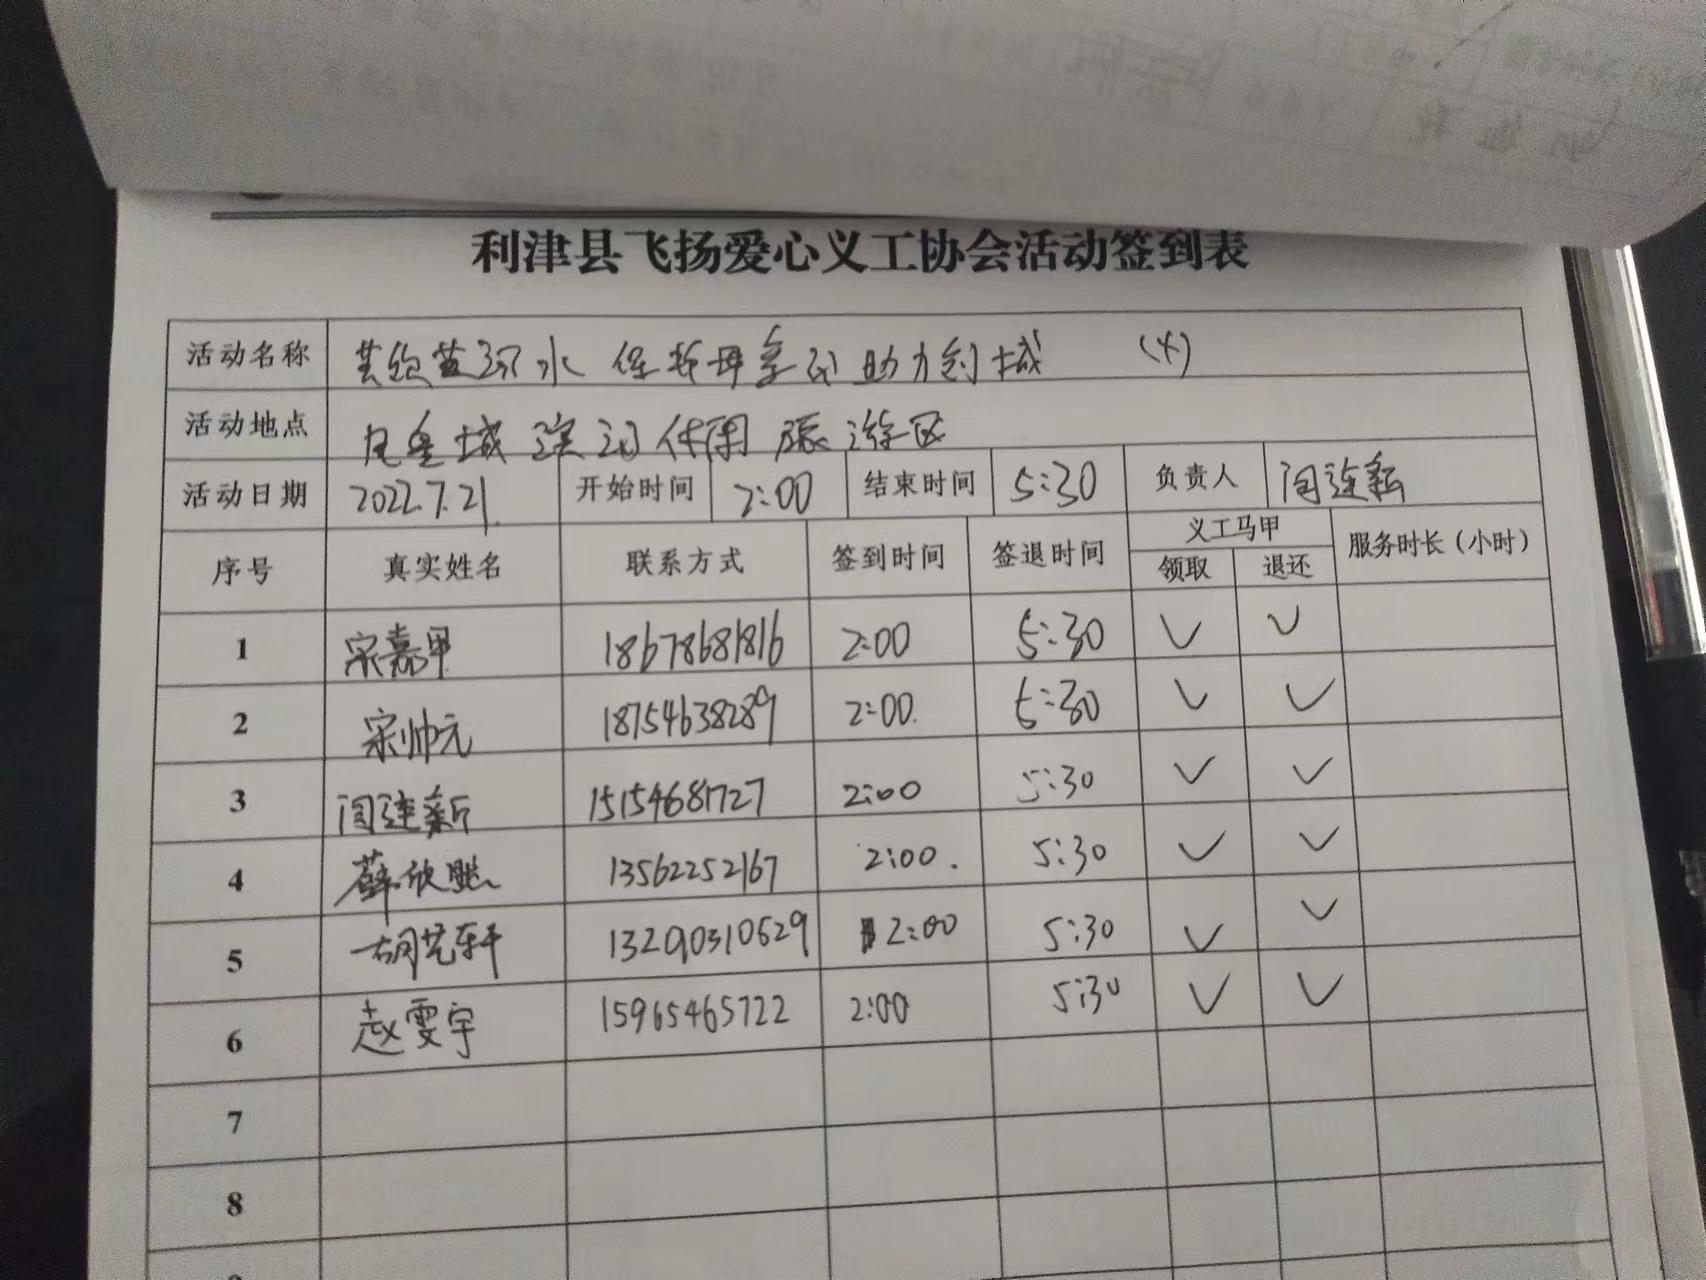 利津县飞扬爱心义工协会活动签到表
活动名称 共饮黄河水 保护母亲河 助力创城
活动地点 凤凰城 滨河休闲旅游区
活动日期 2022.7.21. 开始时间 2:00 结束时间 5:30 负责人 闫连新
序号 真实姓名 联系方式 签到时间 签退时间 义工马甲 服务时长(小时)
领取 退还
1 宋嘉甲 18678681816 2:00 5:30 ✓ ✓
2 宋帅元 18754638289 2:00. 5:30 ✓ ✓
3 闫连新 15154681727 2:00 5:30 ✓ ✓
4 薛欣 13562252167 2:00. 5:30 ✓ ✓
5 胡艺轩 13290310629 2:00 5:30 ✓ ✓
6 赵雯宇 15965465722 2:00 5:30 ✓ ✓
7
8